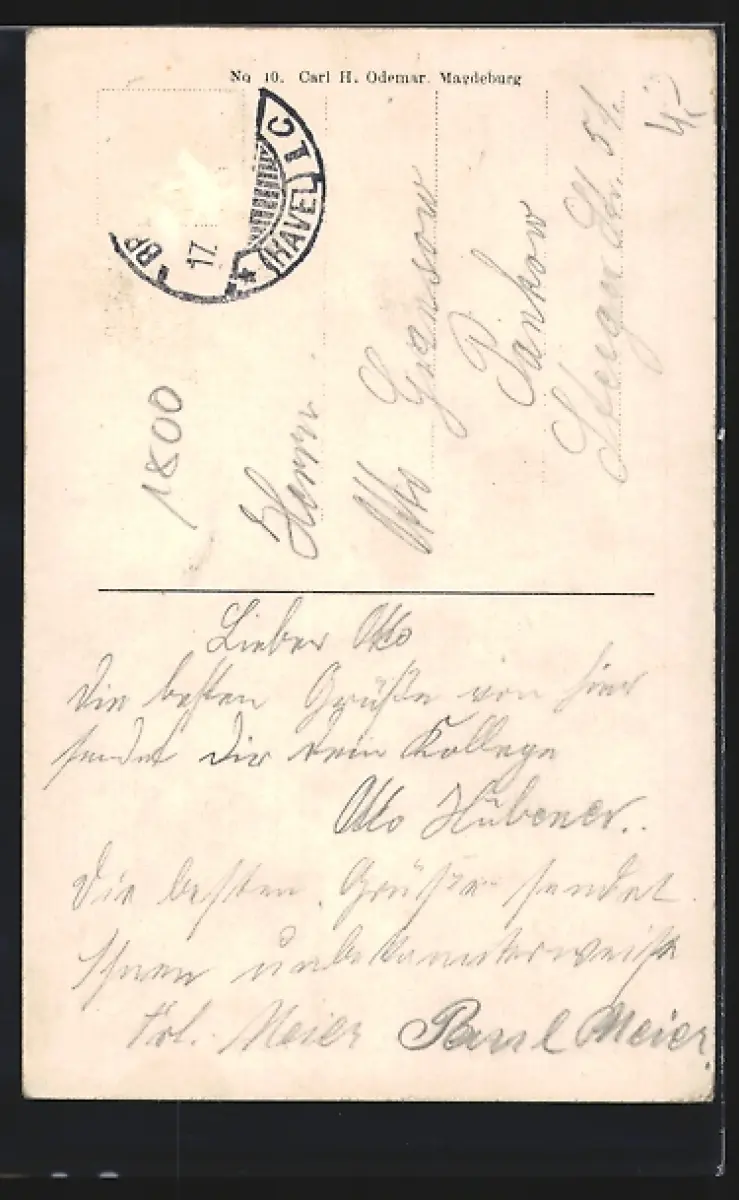 No 10. Carl H. Odemar. Magdeburg
BR
17.
* (HAVEL) 1 C
42
1800
Herrn
Otto Gransow
Pankow
Str. 51
Lieber Otto
Die besten Grüße von hier
sendet Dir dein Kollege
Otto Hübener.
Die besten Grüße sendet
Ihnen unbekannterweise
Frl. Meier Paul Meier.